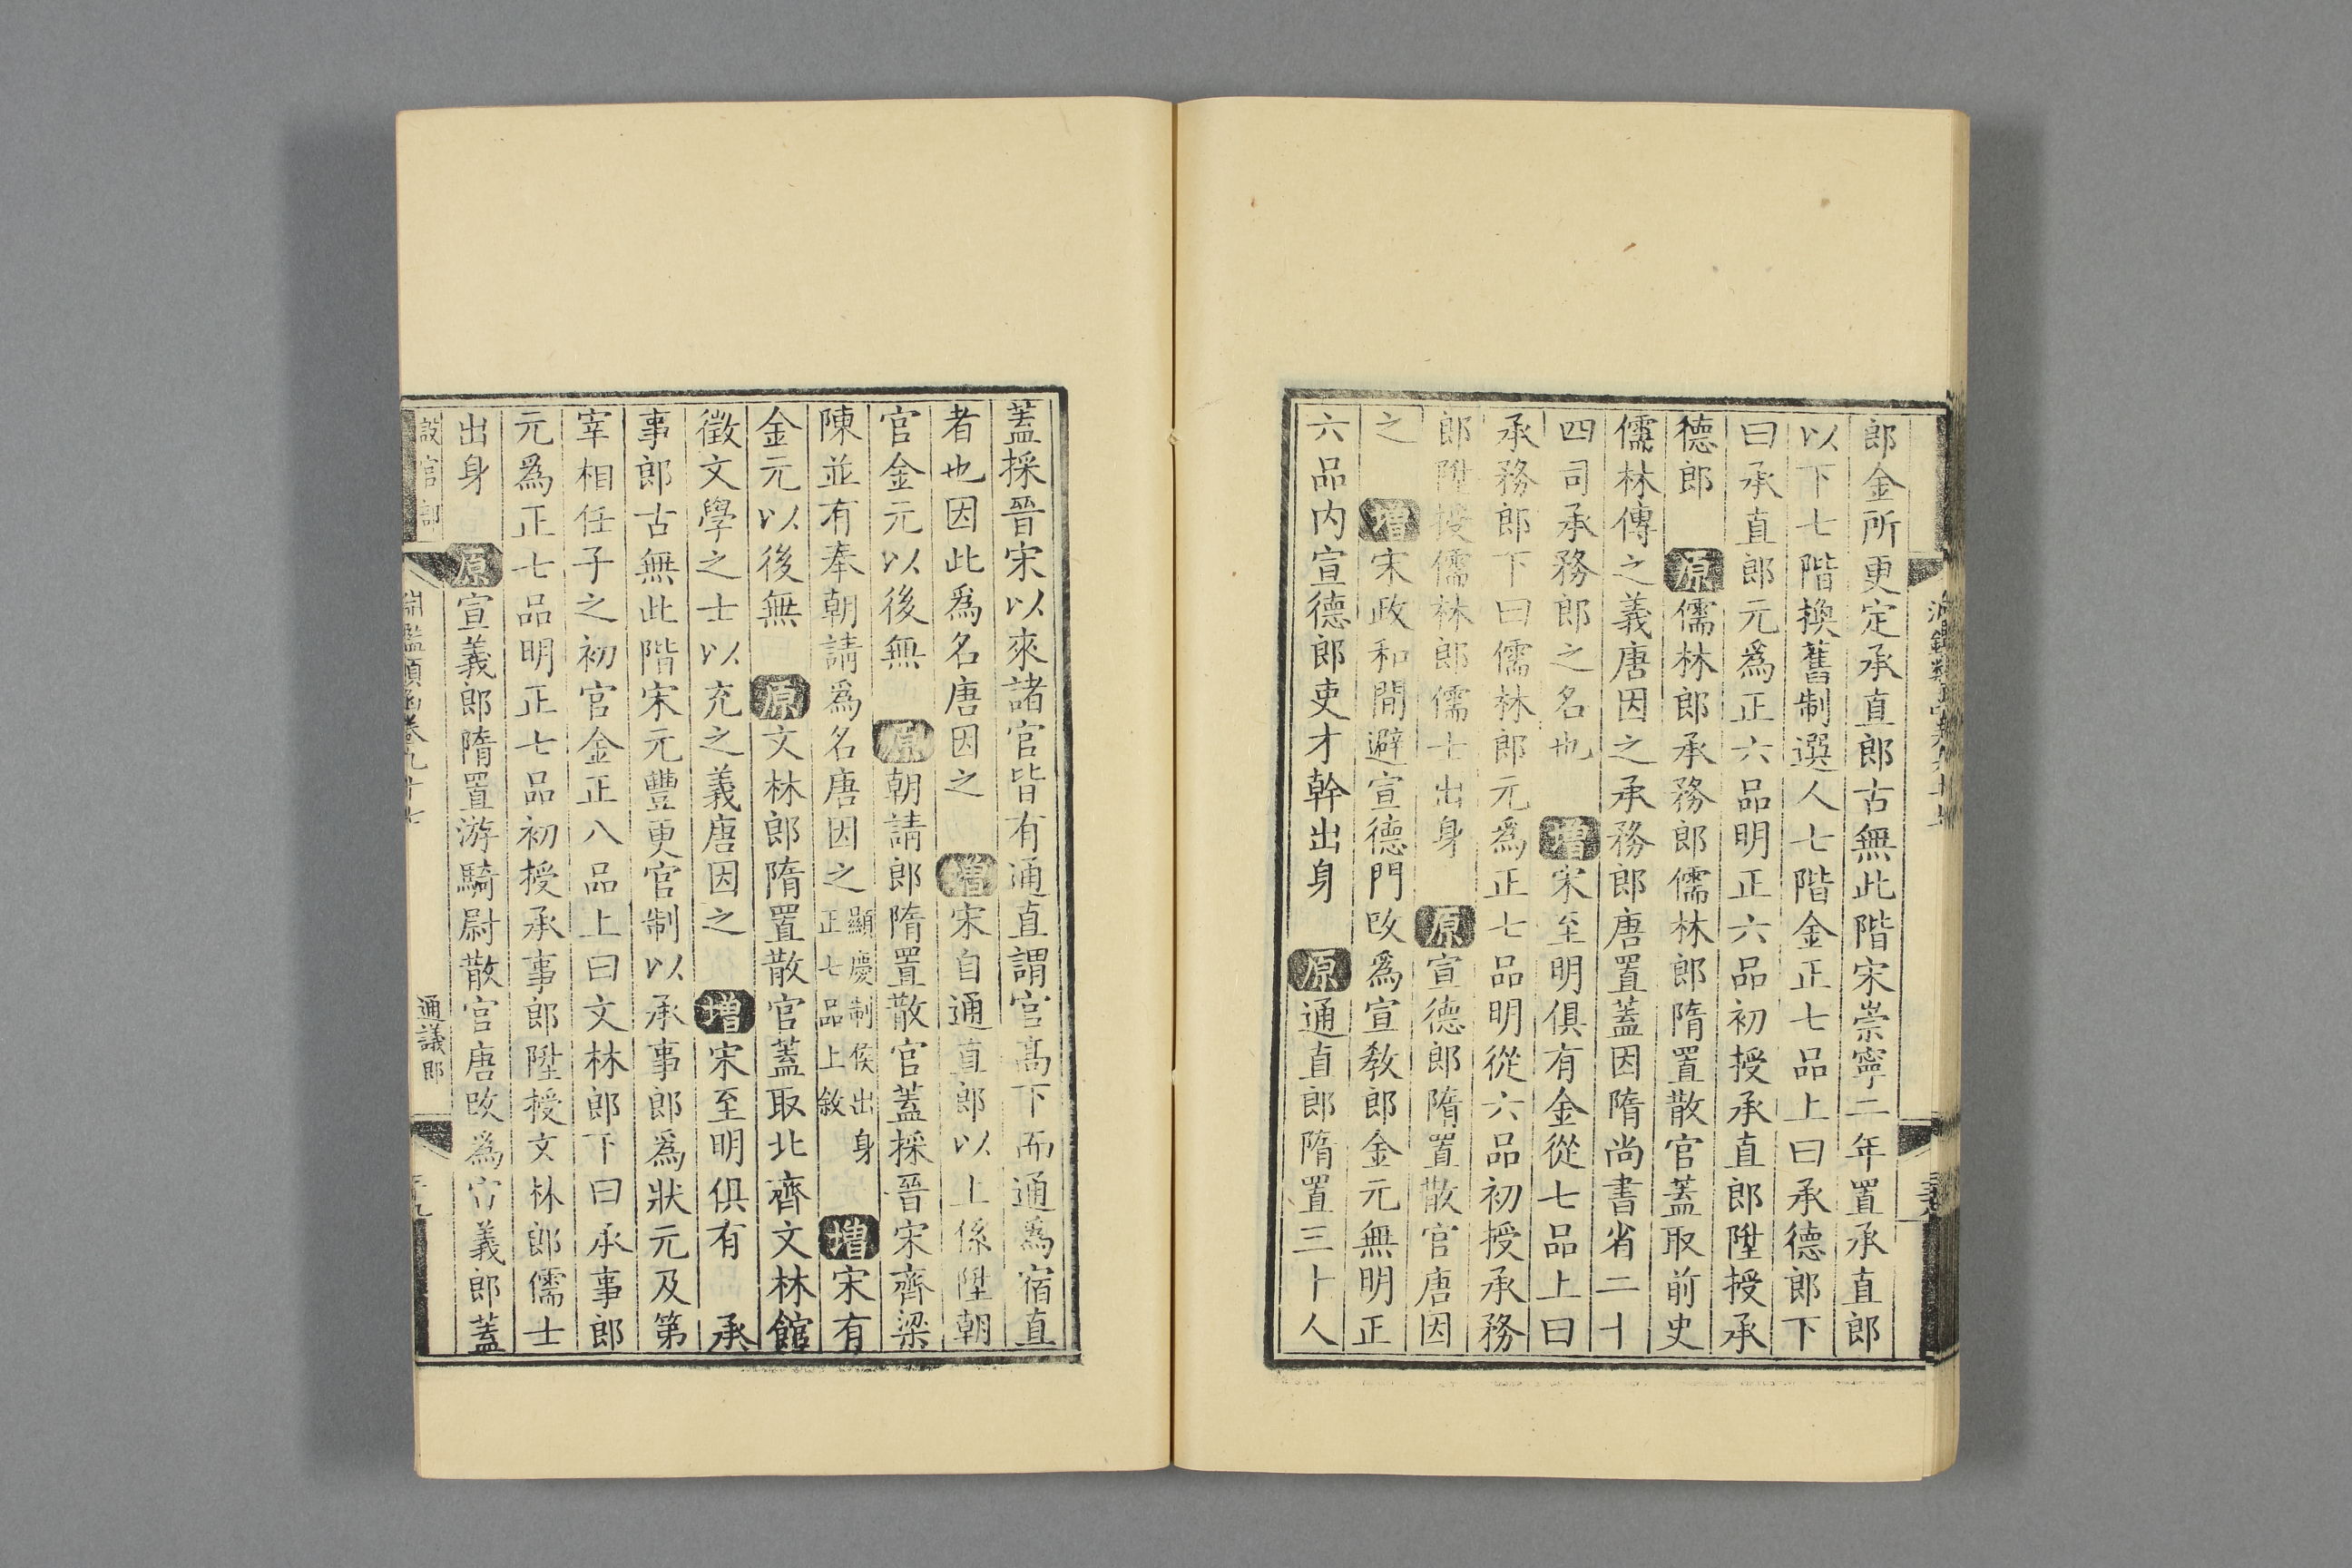 郎金所更定承直郎古無此階宋崇寧二年置承直郎
以下七階換舊制選人七階金正七品上曰承德郎下
曰承直郎元爲正六品明正六品初授承直郎陞授承
德郎 原儒林郎承務郎儒林郎隋置散官蓋取前史
儒林傳之義唐因之承務郎唐置蓋因隋尚書省二十
四司承務郎之名也 增宋至明俱有金從七品上曰
承務郎下曰儒林郎元爲正七品明從六品初授承務
郎陞授儒林郎儒士出身 原宣德郎隋置散官唐因
之 增宋政和間避宣德門改爲宣教郎金元無明正
六品内宣德郎吏才幹出身 原通直郎隋置三十人
蓋採晉宋以來諸官皆有通直謂官高下而通爲宿直
者也因此爲名唐因之 增宋自通直郎以上係陞朝
官金元以後無 原朝請郎隋置散官蓋採晉宋齊梁
陳並有奉朝請爲名唐因之顯慶制侯出身正七品上敘 增宋有
金元以後無 原文林郎隋置散官蓋取北齊文林館
徵文學之士以充之義唐因之 增宋至明俱有 承
事郎古無此階宋元豐更官制以承事郎爲狀元及第
宰相任子之初官金正八品上曰文林郎下曰承事郎
元爲正七品明正七品初授承事郎陞授文林郎儒士
出身 原宣義郎隋置游騎尉散官唐改爲宣義郎蓋
設官部 淵鑑類函卷九十七 通議郎